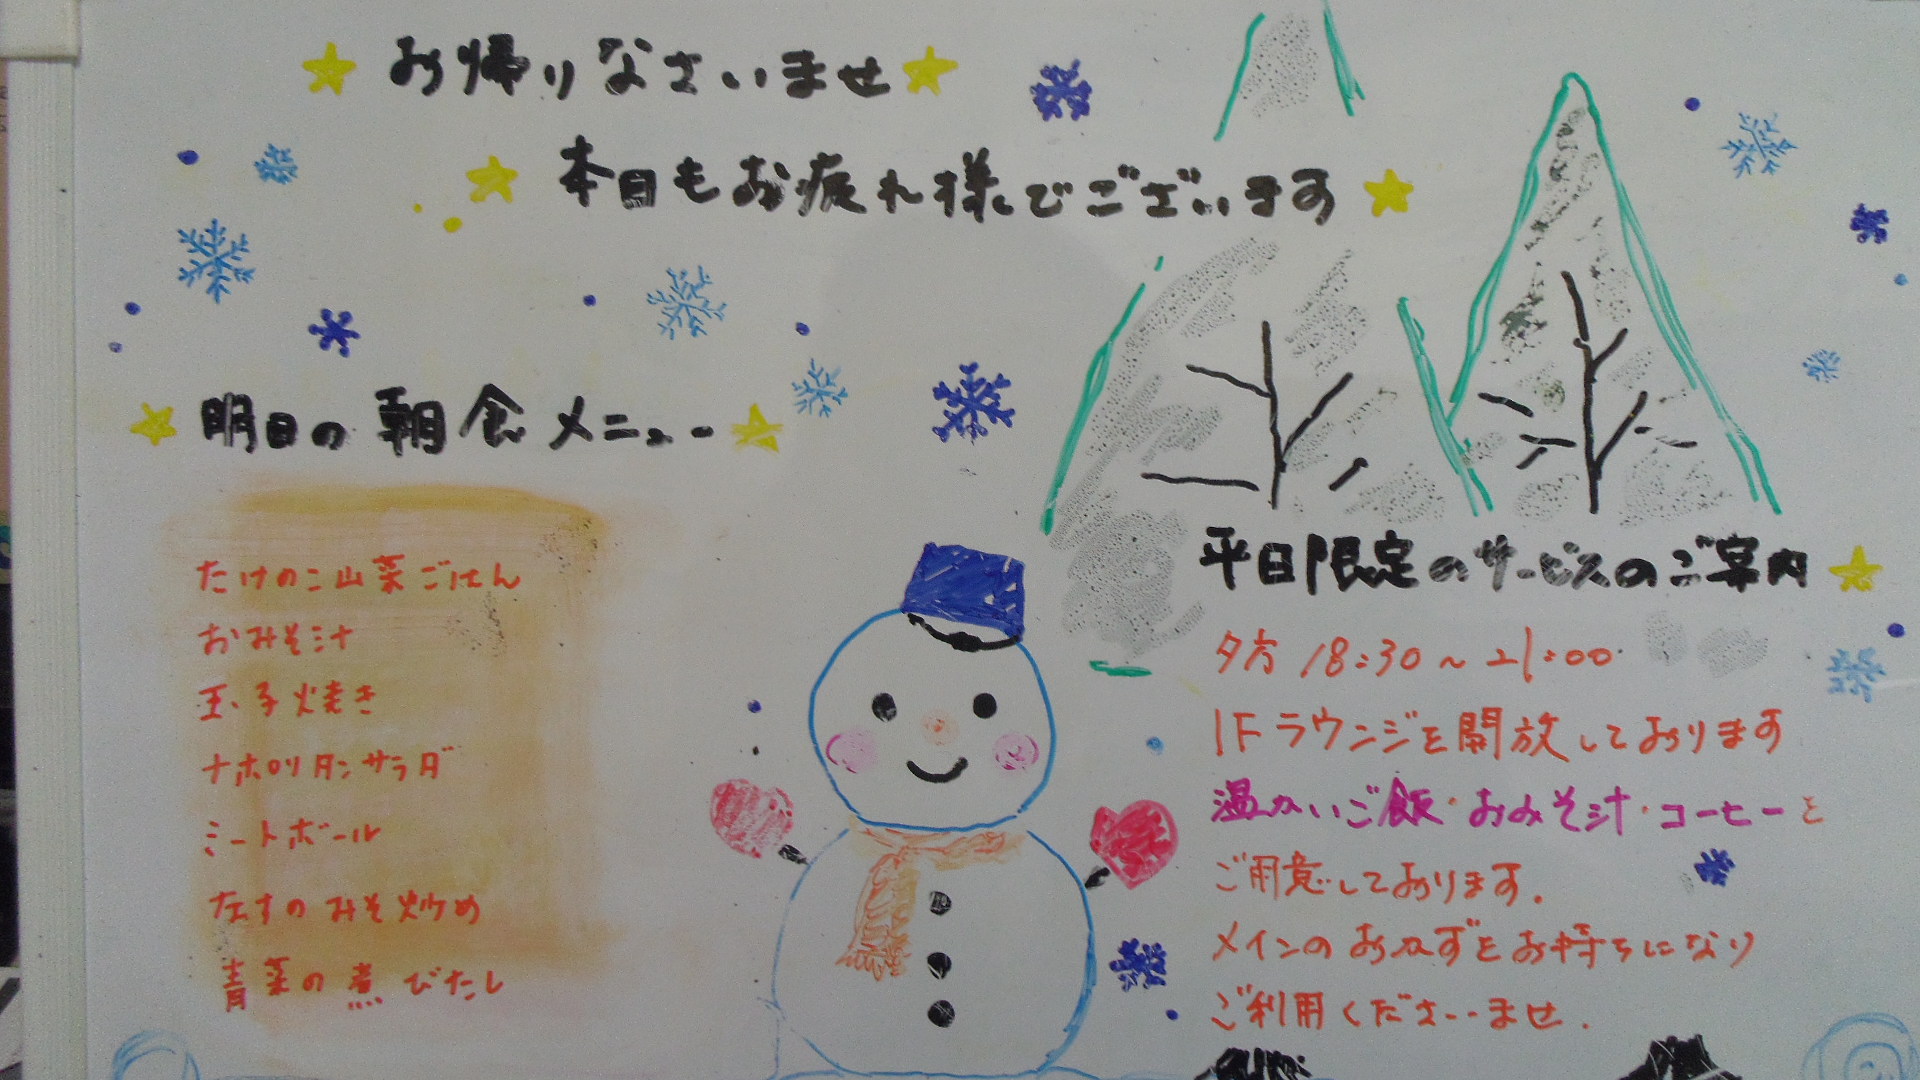 お帰りなさいませ
本日もお疲れ様でございます
明日の朝食メニュー
たけのこ山菜ごはん
おみそ汁
玉子焼き
ナポリタンサラダ
ミートボール
なすのみそ炒め
青菜の煮びたし
平日限定のサービスのご案内
夕方 18:30〜21:00
1Fラウンジを開放しております
温かいご飯・おみそ汁・コーヒーを
ご用意しております。
メインのおかずをお持ちになり
ご利用くださいませ.